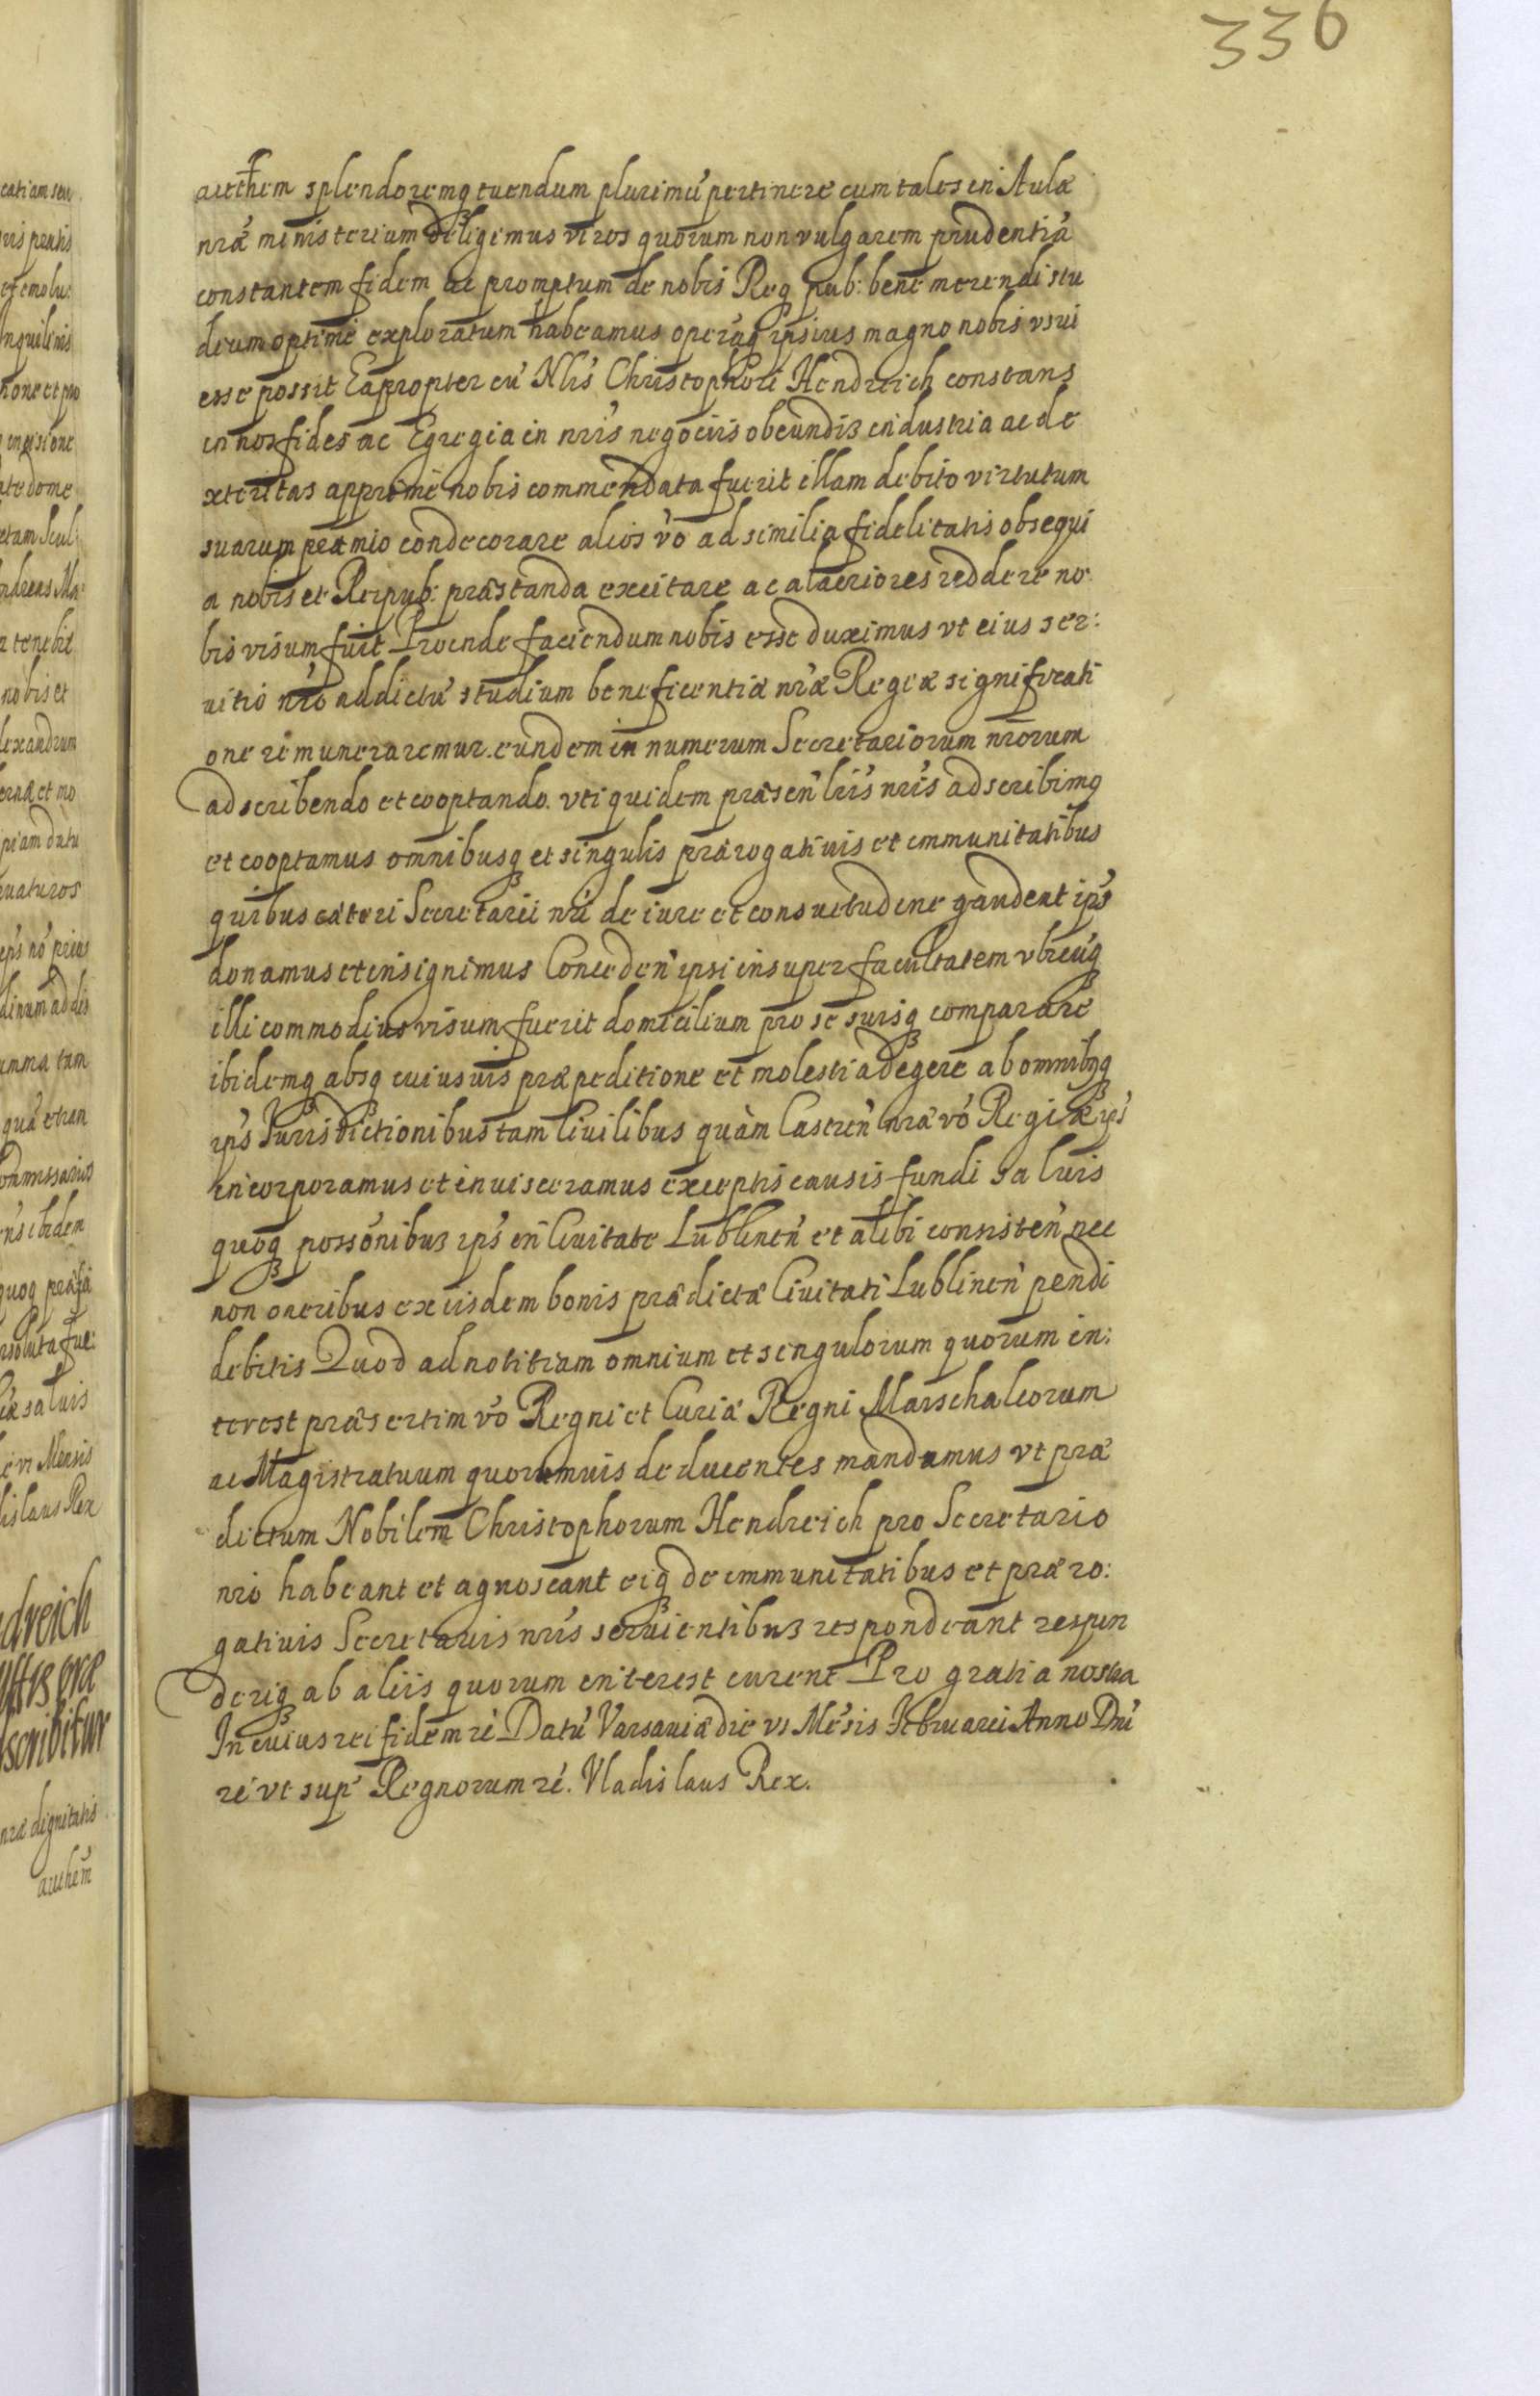 336
aucthem splendoremq tuendum plurimú pertinere cum tales in Aula
nrá ministerium diligimus viros quorum non vulgarem prudentiá
constantem fidem ac promptum de nobis Reiq pub: bene merendi stu
dium optime exploratum habeamus operáq ipsius magno nobis vsui
esse possit Eapropter cú Nlis Christophori Hendreich constans
in nos fides ac Egregia in nris negociis obeundis industria ac de
xteritas apprime nobis commendata fuerit illam debito virtutum
suarum præmio condecorare alios vo ad similia fidelitatis obsequi
a nobis et Reipub: præstanda excitare ac alacriores reddere no
bis visum fuit Proinde faciendum nobis esse duximus vt eius ser:
uitio nro addictú studium beneficentiæ nræ Regiæ significati
one remuneraremur. eundem in numerum Secretariorum nrorum
adscribendo et cooptando. vti quidem præsen lris nris adscribimq
et cooptamus omnibusq et singulis prærogatiuis et immunitatibus
quibus cæteri Secretarii nri de iure et consuetudine gaudent ips
donamus et insignimus Conceden ipsi insuper facultatem vbicúq
illi commodius visum fuerit domicilium pro se suisq comparare
ibidemq absq cuiusuis præpeditione et molestia degere ab omnibq
ips Jurisdictionibus tam Ciuilibus quàm Castren nræ vo Regiæ ips
incorporamus et inuisceramus exceptis causis fundi saluis
quoq possonibus ips in Ciuitate Lublinen et alibi consisten nec
non oneribus ex iisdem bonis prædictæ Ciuitati Lublinen pendi
debitis Quod ad notitiam omnium et singulorum quorum in:
terest præsertim vo Regni et Curiæ Regni Marschalcorum
ac Magistratuum quorumuis deducentes mandamus vt præ
dictum Nobilem Christophorum Hendreich pro Secretario
nro habeant et agnoscant eiq de immunitatibus et præro:
gatiuis Secretariis nris seruientibus respondeant respon
deriq ab aliis quorum interest curent Pro gratia nostra
In cuius rei fidem ré Datú Varsauiæ die vi Mésis Februarii Anno Dni
ré vt sup Regnorum ré. Vladislaus Rex.